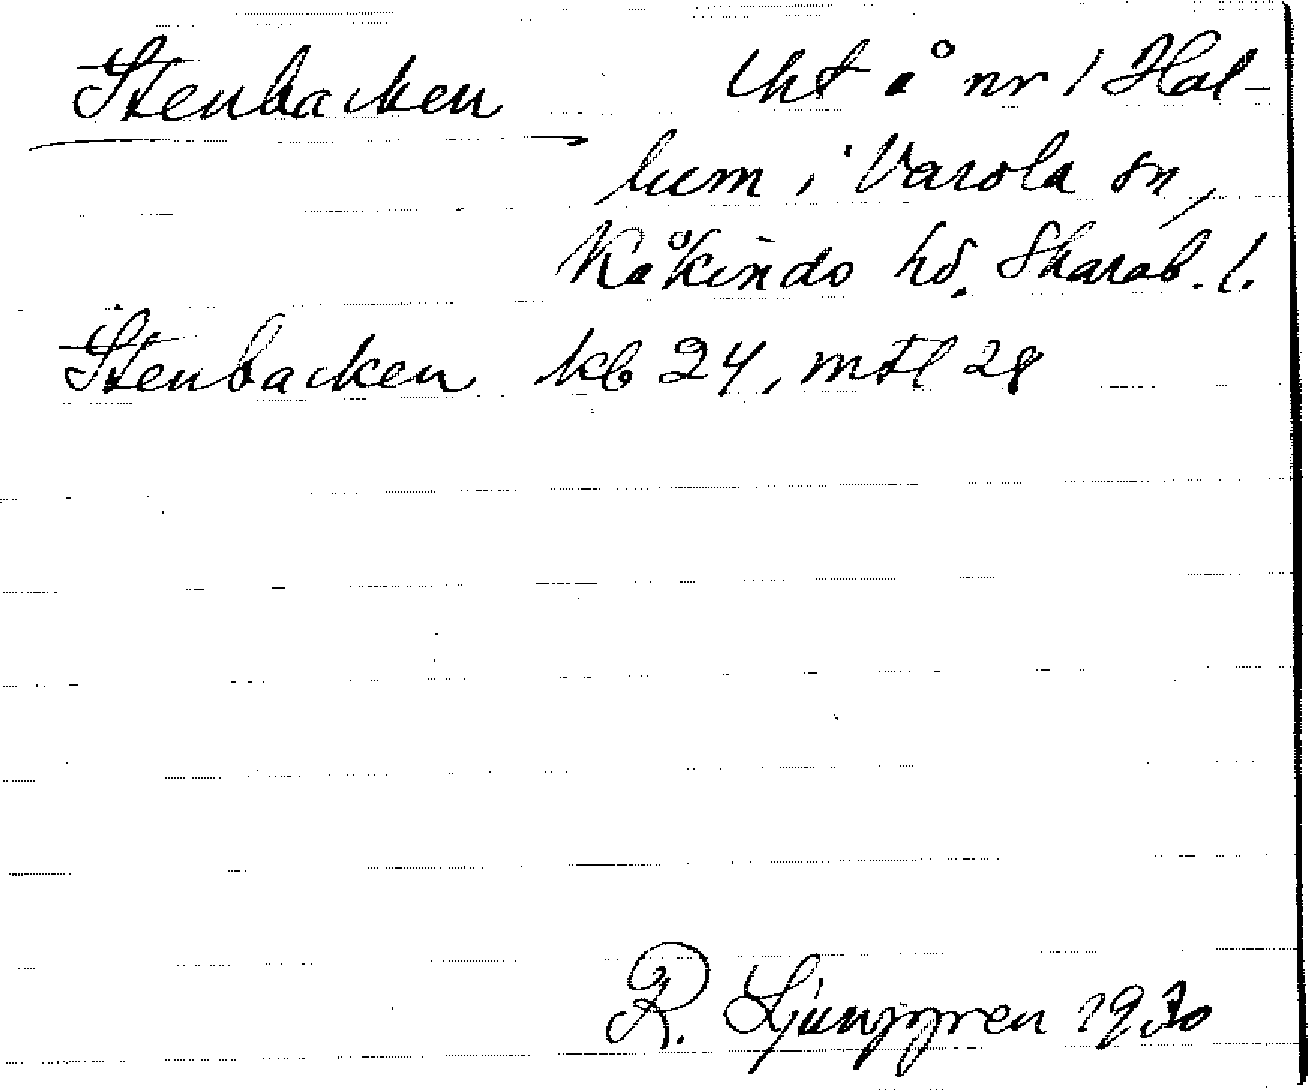 Stenbacken lht å nr 1 Hol-
lum i Varola sn,
Kåkinds hd. Skarab. l.
Stenbacken kb 24, mtl 28
R. Ljunggren 1930